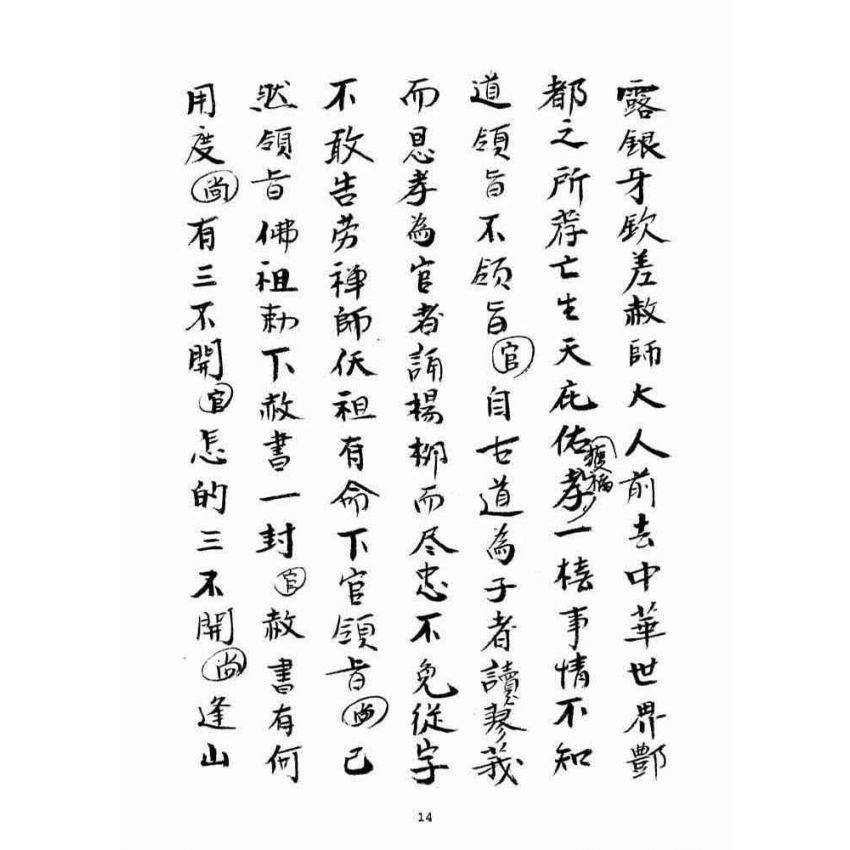 露銀牙欽差赦師大人前去中華世界酆
都之所荐亡生天庇佑孝獲福一樁事情不知
道領旨不領旨官自古道為子者讀蓼莪
而思孝為官者誦楊柳而尽忠不免從字
不敢告劳禅師佚祖有命下官領旨尚已
然領旨佛祖勅下赦書一封官赦書有何
用度尚有三不開官怎的三不開尚逢山
14